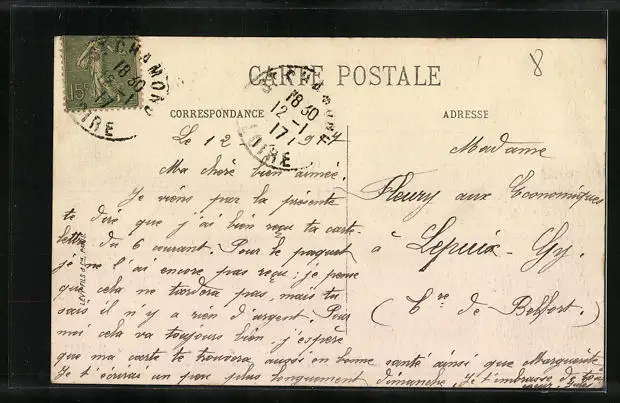 8
CARTE POSTALE
CORRESPONDANCE
ADRESSE
15c
ST CHAMOND
18 30
12-1
17
LOIRE
Le 12-1-917
Ma chère bien aimée.
Je viens par la présente
te dire que j'ai bien reçu ta carte-
lettre du 6 courant. Pour le paquet
je ne l'ai encore pas reçu; je pense
que cela ne tardera pas, mais tu
sais il n'y a rien d'urgent. Pour
moi cela va toujours bien, j'espère
que ma carte te trouvera aussi en bonne santé ainsi que Marguerite
Je t'écrirai un peu plus longuement dimanche. Je t'embrasse de tout
Madame
Fleury aux Economiques
à Lepuix-Gy.
(Tre de Belfort.)
LEVY FILS & Cie PARIS